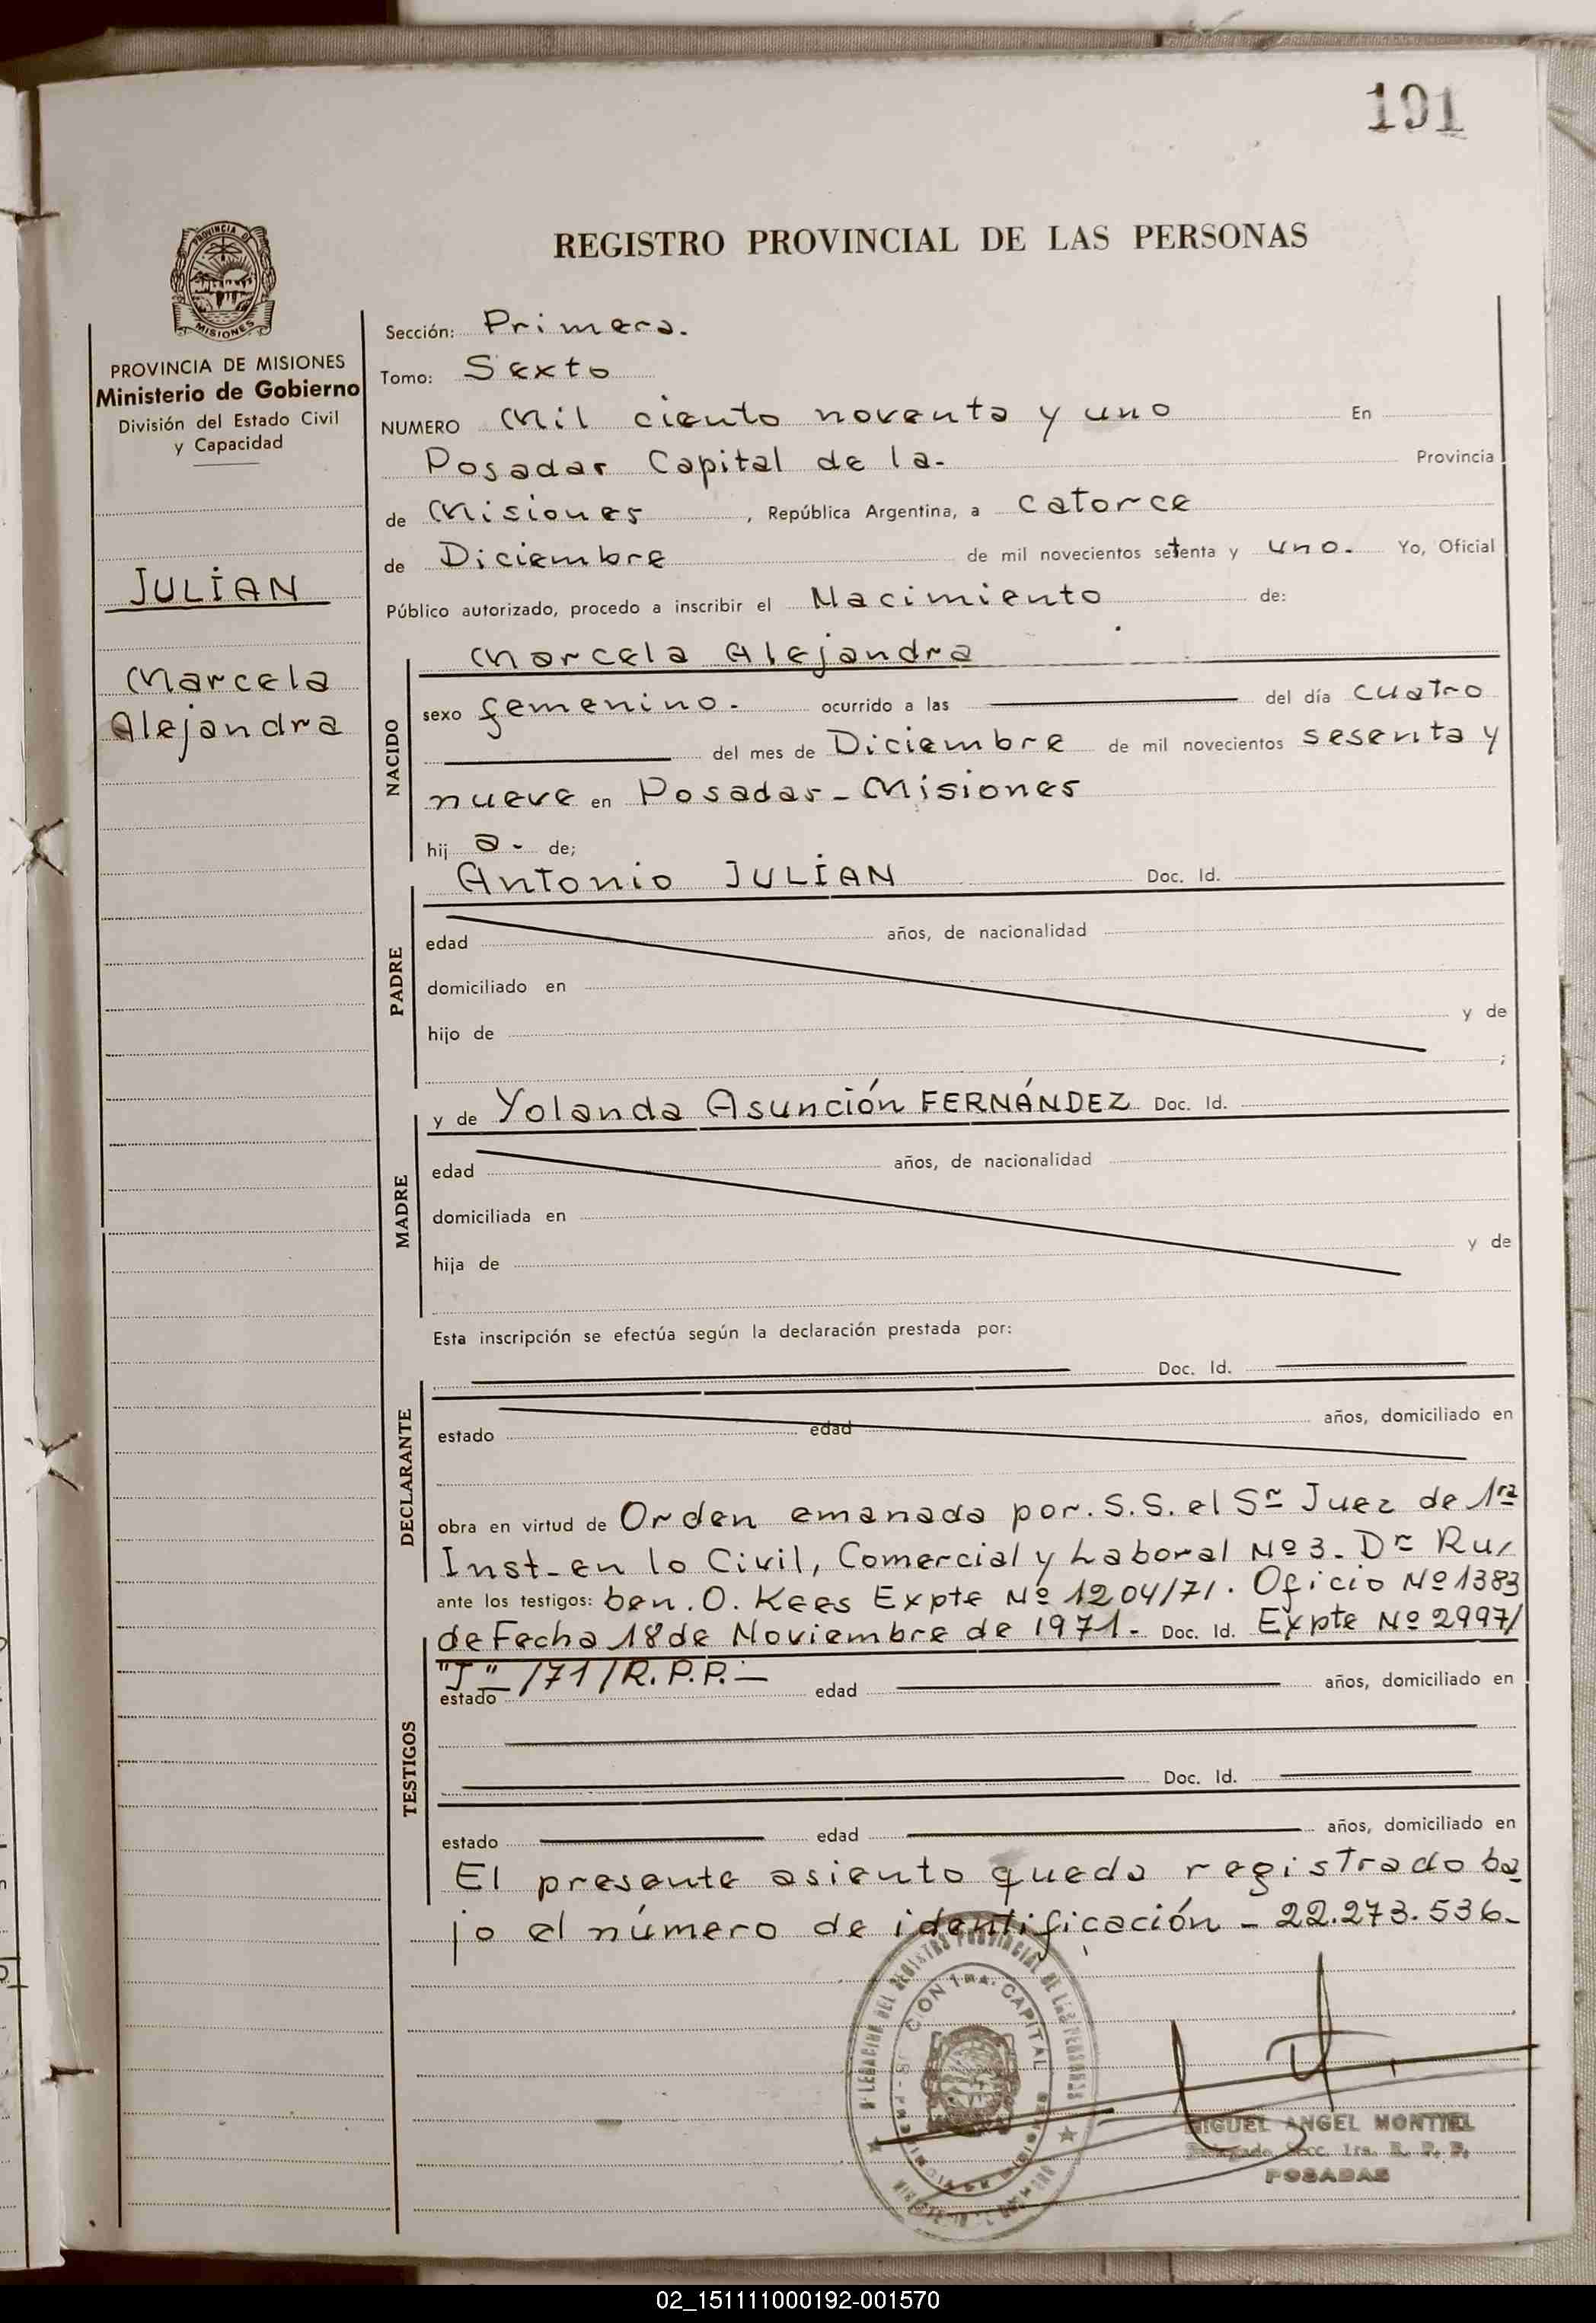 191
PROVINCIA DE
MISIONES
REGISTRO PROVINCIAL DE LAS PERSONAS
PROVINCIA DE MISIONES
Ministerio de Gobierno
División del Estado Civil
y Capacidad
JULIAN
Marcela
Alejandra
Sección: Primera.
Tomo: Sexto
NUMERO Mil ciento noventa y uno En
Posadas Capital de la- Provincia
de Misiones , República Argentina, a catorce
de Diciembre de mil novecientos setenta y uno. Yo, Oficial
Público autorizado, procedo a inscribir el Nacimiento de:
Marcela Alejandra
NACIDO
sexo femenino. ocurrido a las del día cuatro
del mes de Diciembre de mil novecientos sesenta y
nueve en Posadas-Misiones
hij a. de;
Antonio JULIAN Doc. Id.
PADRE
edad años, de nacionalidad
domiciliado en
hijo de y de
;
y de Yolanda Asunción FERNÁNDEZ Doc. Id.
MADRE
edad años, de nacionalidad
domiciliada en
hija de y de
Esta inscripción se efectúa según la declaración prestada por:
Doc. Id.
DECLARANTE
estado edad años, domiciliado en
obra en virtud de Orden emanada por. S.S. el Sr Juez de 1ra
Inst-en lo Civil, Comercial y Laboral Nº 3. Dr Ru/
ante los testigos: ben. O. Kees Expte Nº 1204/71. Oficio Nº 1383
de Fecha 18 de Noviembre de 1971.- Doc. Id. Expte Nº 2997/
"J" /71/R.P.P.-
estado edad años, domiciliado en
TESTIGOS
Doc. Id.
estado edad años, domiciliado en
El presente asiento queda registrado ba
jo el número de identificación - 22.273.536-
DEL REGISTRO PROVINCIAL DE LAS PERSONAS
CAPITAL
MIGUEL ANGEL MONTIEL
Secc. 1ra. R. P. P.
POSADAS
02_151111000192-001570